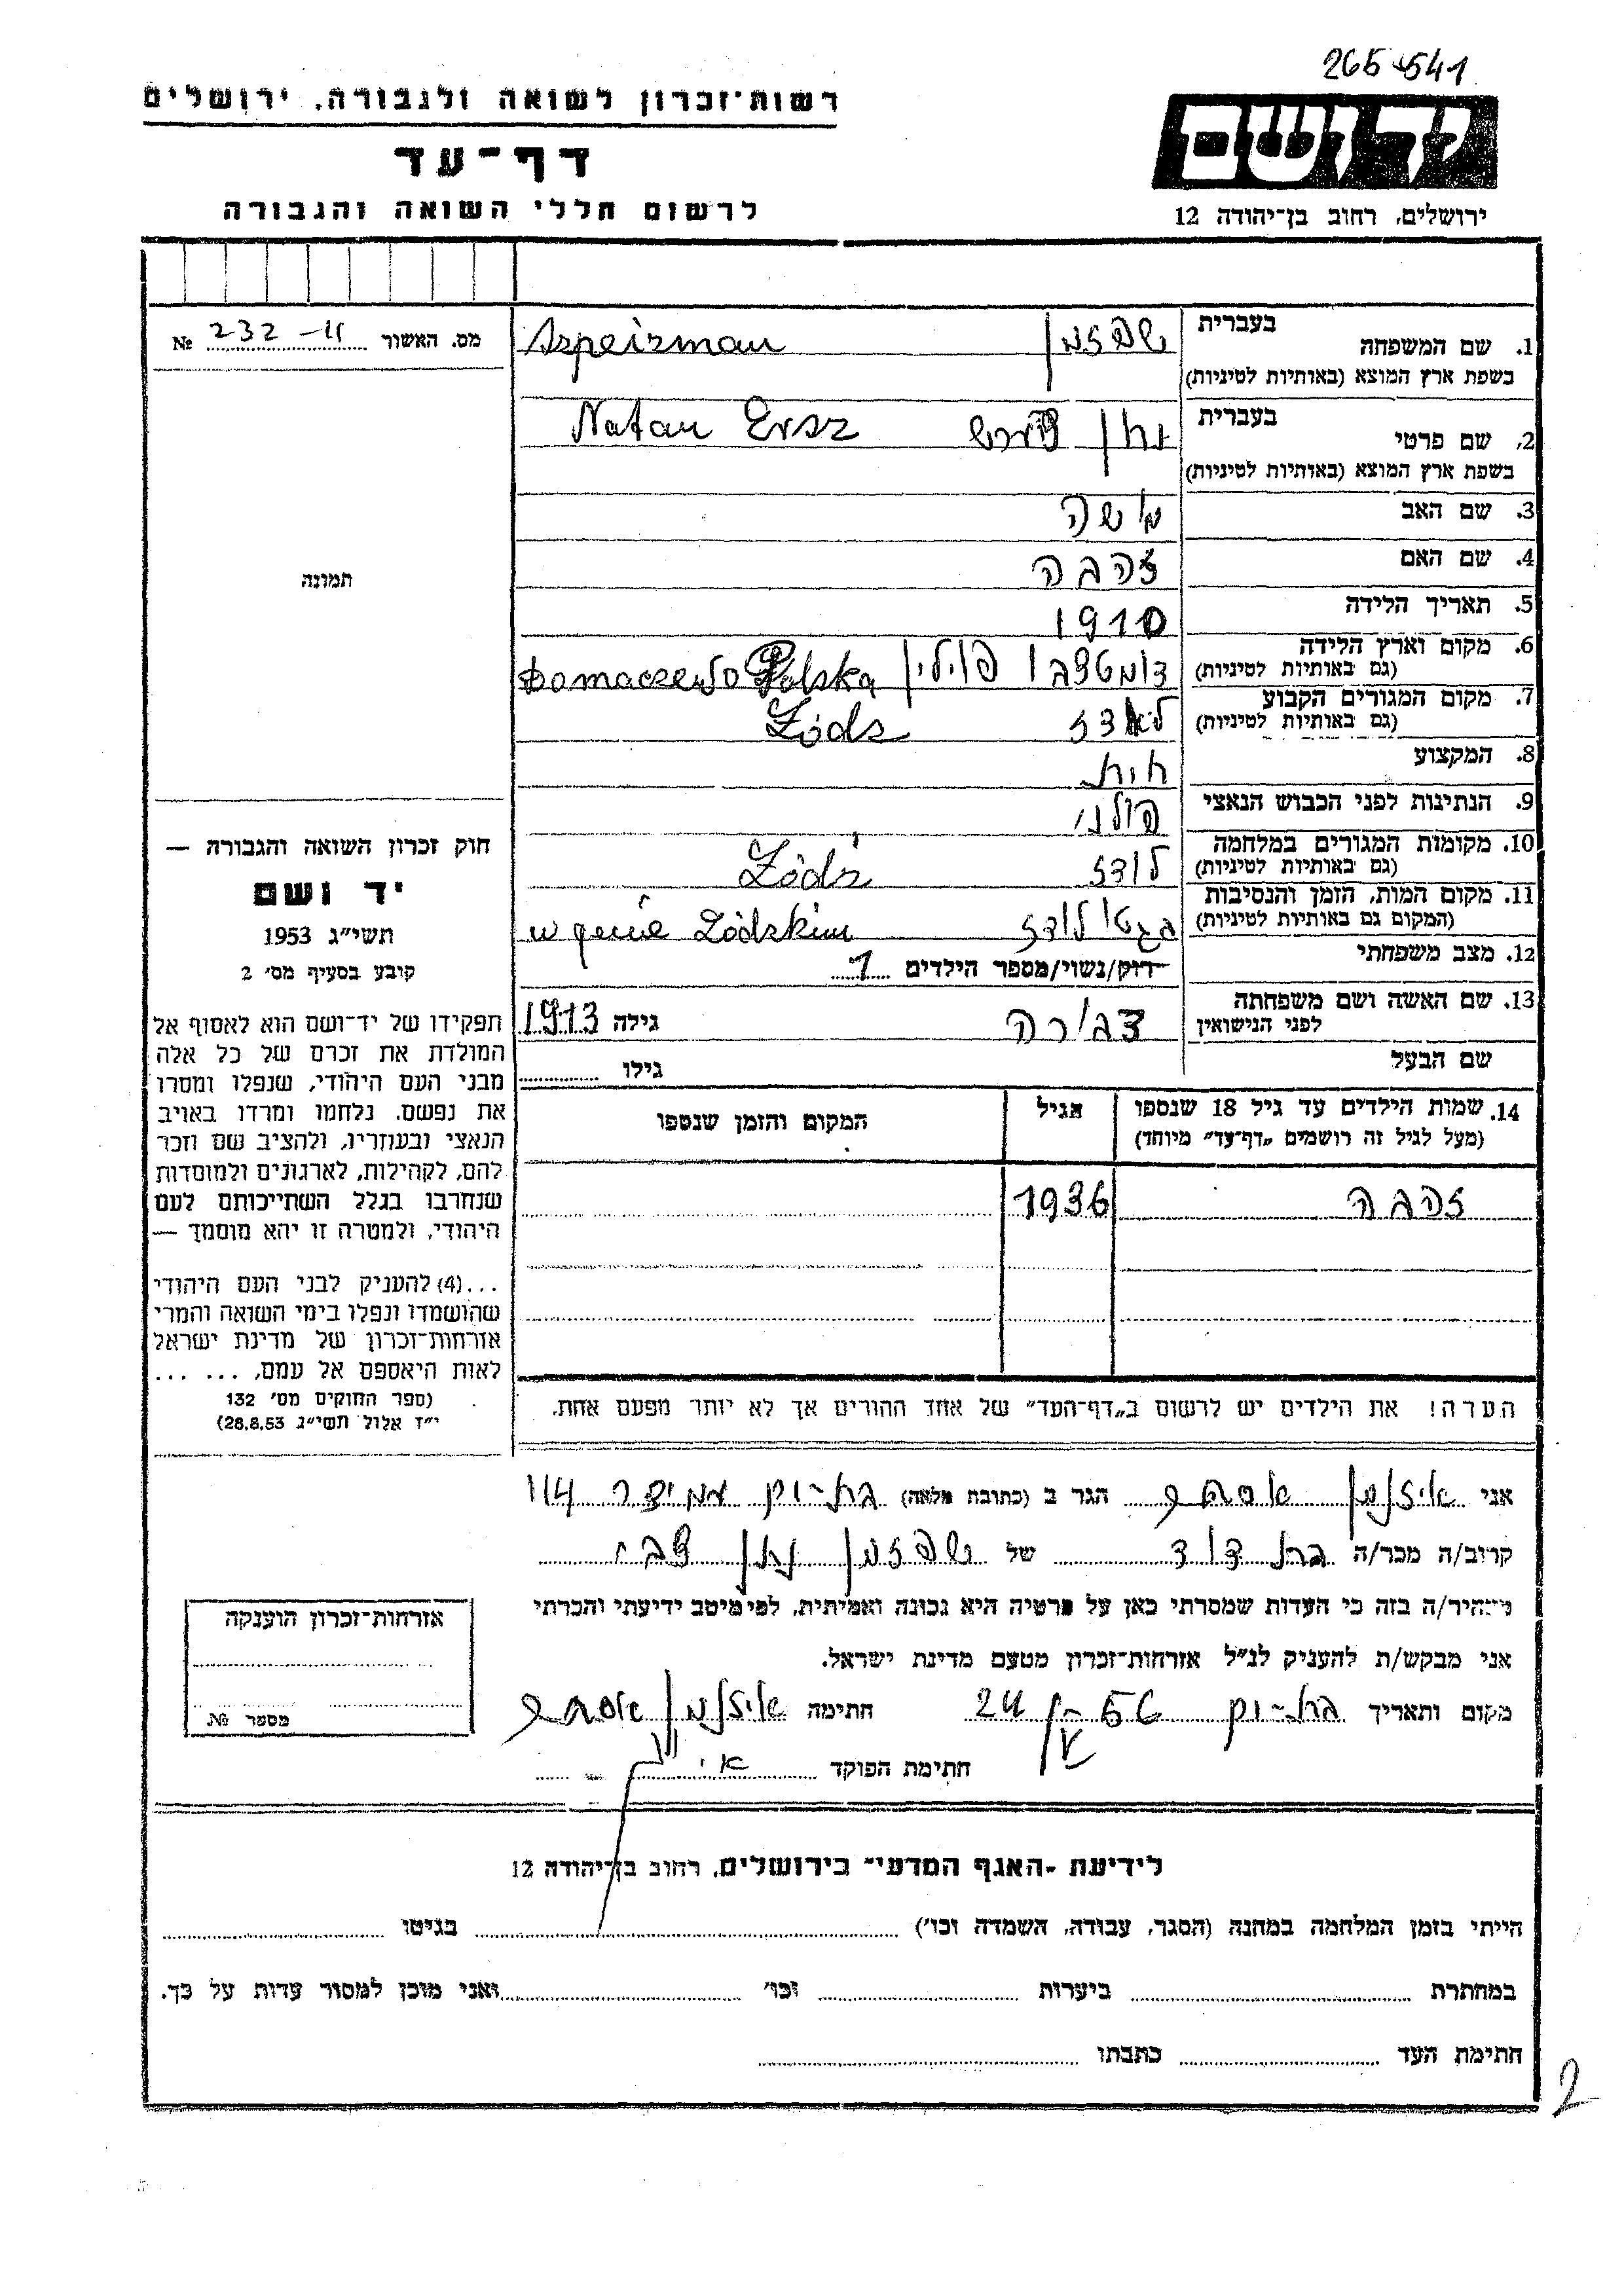 265-541
רשות־זכרון לשואה ולגבורה, ירושלים
יד ושם
דף־עד
לרשום חללי השואה והגבורה
ירושלים, רחוב בן־יהודה 12
מס. האשור 232 – № 
1. שם המשפחה בעברית שפזמן Szpeizman
בשפת ארץ המוצא (באותיות לטיניות)
2. שם פרטי בעברית נתן Natan Ersz
בשפת ארץ המוצא (באותיות לטיניות)
3. שם האב מושה
4. שם האם זהבה
5. תאריך הלידה 1910
6. מקום וארץ הלידה דומטצבו פוילין Domaczewo Polska
(גם באותיות לטיניות)
7. מקום המגורים הקבוע לאדז Łódz
(גם באותיות לטיניות)
8. המקצוע חיט
9. הנתינות לפני הכבוש הנאצי פולני
10. מקומות המגורים במלחמה לודז Łódź
(גם באותיות לטיניות)
11. מקום המות, הזמן והנסיבות בגטו לודז w gecie Łódzkim
(המקום גם באותיות לטיניות)
12. מצב משפחתי רוק/נשוי/מספר הילדים 1
13. שם האשה ושם משפחתה לפני הנישואין צבירה גילה 1913
שם הבעל גילו
14. שמות הילדים עד גיל 18 שנספו
(מעל לגיל זה רושמים „דף־עד” מיוחד)
הגיל
המקום והזמן שנספו
זהבה 1936
הערה! את הילדים יש לרשום ב„דף־העד” של אחד ההורים אך לא יותר מפעם אחת.
תמונה
חוק זכרון השואה והגבורה —
יד ושם
תשי״ג 1953
קובע בסעיף מס׳ 2
תפקידו של יד־ושם הוא לאסוף אל
המולדת את זכרם של כל אלה
מבני העם היהודי, שנפלו ומסרו
את נפשם, נלחמו ומרדו באויב
הנאצי ובעוזריו, ולהציב שם וזכר
להם, לקהילות, לארגונים ולמוסדות
שנחרבו בגלל השתייכותם לעם
היהודי, ולמטרה זו יהא מוסמך —
...(4) להעניק לבני העם היהודי
שהושמדו ונפלו בימי השואה והמרי
אזרחות־זכרון של מדינת ישראל
לאות היאספם אל עמם, ... ...
(ספר החוקים מס׳ 132
י״ז אלול תשי״ג 28.8.53)
אני איזנמן אסתר הגר ב (כתובת מלאה) בת־ים עמידר 114
קרוב/ה מכר/ה בת דוד של שפזמן נתן צבי
מצהיר/ה בזה כי העדות שמסרתי כאן על פרטיה היא נכונה ואמיתית, לפי מיטב ידיעתי והכרתי
אני מבקש/ת להעניק לנ״ל אזרחות־זכרון מטעם מדינת ישראל.
מקום ותאריך בת־ים 56 24 חתימה איזנמן אסתר
חתימת הפוקד
אזרחות־זכרון הוענקה
מספר №
לידיעת ־האגף המדעי־ בירושלים, רחוב בן־יהודה 12
הייתי בזמן המלחמה במחנה (הסגר, עבודה, השמדה וכו׳) בגיטו
במחתרת ביערות וכו׳ ואני מוכן למסור עדות על כך.
חתימת העד כתבתו
2